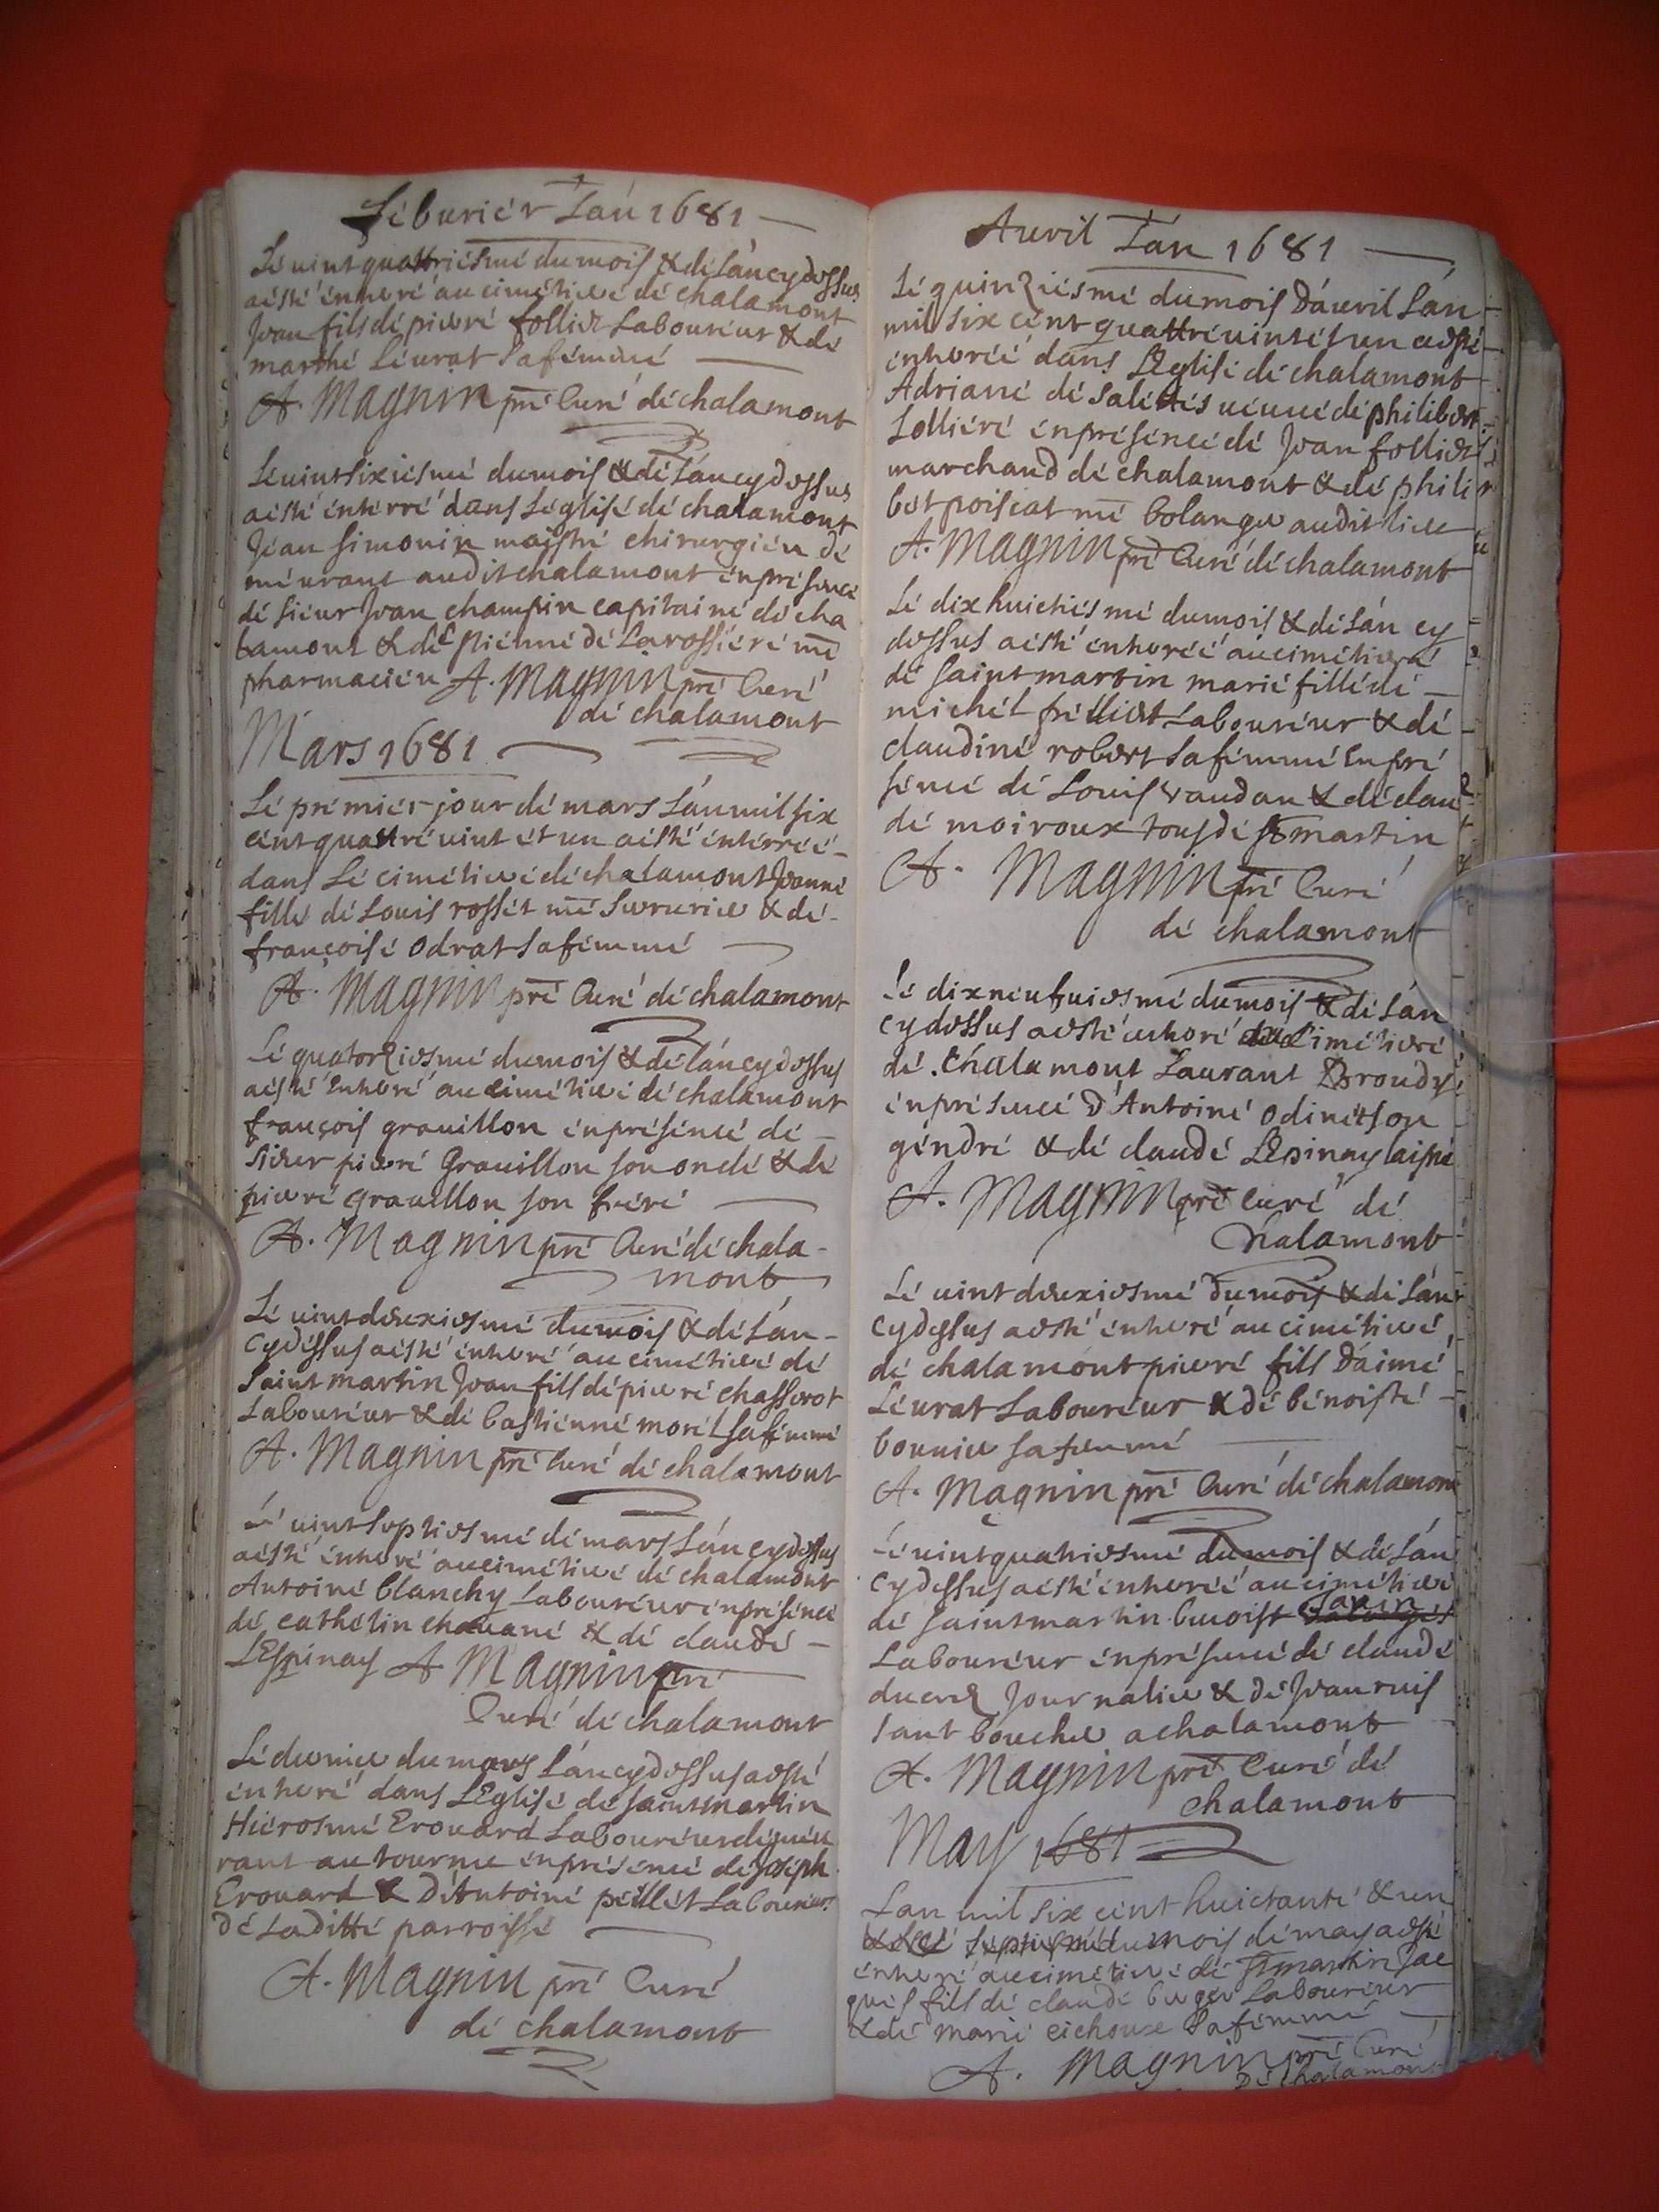 Feburier Lan 1681
Le uint quattriesme du mois & de lan cy dessus
a esté enterré au cimetiere de chalamont
Jean fils de pierre follier Laboureur & de
marthe Leurat sa femme
A. Magnin pre Curé de chalamont
Le uint sixiesme du mois & de lan cy dessus
a esté enterré dans Leglise de chalamont
Jean simonin maistre chirurgien de
meurant audit chalamont en presence
de sieur Jean champin capitaine de cha
lamont & de Etienne de Larossiere me
pharmacien A. Magnin pre Curé
de chalamont
Mars 1681
Le premier jour de mars Lan mil six
cent quattre uint et un a esté enterrée
dans Le cimetiere de chalamont Jeanne
fille de Louis rosset me serrurier & de
françoise Odrat sa femme
A. Magnin pre Curé de chalamont
Le quatorziesme du mois & de lan cy dessus
a esté enterré au cimetiere de chalamont
françois grauillon en presence de
sieur pierre Grauillon son oncle & de
pierre grauillon son frere
A. Magnin pre Curé de chala-
mont
Le uint deuxiesme du mois & de Lan
cy dessus a esté enterré au cimetiere de
Saint martin Jean fils de pierre chasserot
Laboureur & de bastienne morel sa femme
A. Magnin pre Curé de chalamont
Le uint septiesme de mars Lan cy dessus
a esté enterré au cimetiere de chalamont
Antoine blanchy Laboureur en presence
de cathelin chauane & de claude
LEspinay A Magnin pre
Curé de chalamont
Le dernier du mars Lan cy dessus a esté
enterré dans LEglise de saint martin
Hierosme Erouard Laboureur demeu
rant au tournu en presence de joseph
Erouard & d'Antoine peillet Laboureur
de Laditte parroisse
A. Magnin pre Curé
de chalamont
Auril Lan 1681
Le quinziesme du mois d'auril Lan
mil six cent quattre uint et un a esté
enterrée dans LEglise de chalamont
Adriane de salettes ueuue de philibert
Lolliere en presence de Jean follier
marchand de chalamont & de phili
bert poiseat me bolanger audit lieu
A. Magnin pre Curé de chalamont
Le dix huictiesme du mois & de lan cy
dessus a esté enterrée au cimetiere
de saint martin marie fille de
michel Laboureur & de
claudine robert sa femme En pre
sence de Louis vaudan & de clau
de moiroux tous de st martin
A. Magnin pre Curé
de chalamont
Le dix neufuiesme du mois & de lan
cy dessus a esté enterré au Cimetiere
de Chalamont Laurant Broudy
en presence d'Antoine Odinet son
gendre & de claude LEspinay laisné
A. Magnin pre Curé de
Chalamont
Le uint deuxiesme du mois & de Lan
cy dessus a esté enterré au cimetiere
de chalamont pierre fils d'aimé
Leurat Laboureur & de benoiste
bouuier sa femme
A. Magnin pre Curé de chalamont
Le uint quatriesme du mois & de Lan
cy dessus a esté enterrée au cimetiere
de saint martin benoist Janin
Laboureur en presence de claude
ducré Journalier & de Jean ruis
sant boucher a chalamont
A. Magnin pre Curé de
chalamont
May 1681
Lan mil six cent huictante & un
& le septiesme du mois de may a esté
enterré au cimetiere de st martin Jac
ques fils de claude berger Laboureur
& de marie cichoux sa femme
A. Magnin pre Curé
De Chalamont